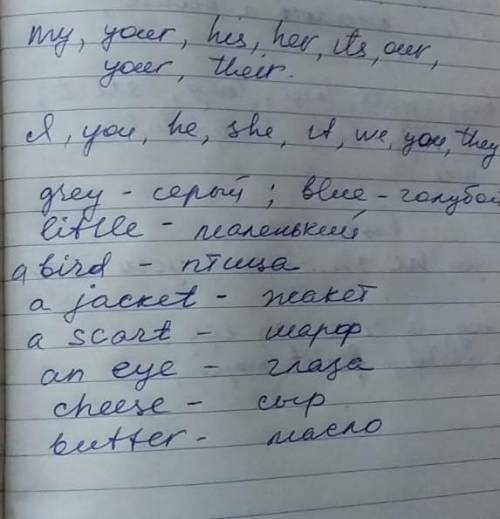 my, your, his, her, its, our,
your, their.
I, you, he, she, it, we, you, they
grey - серый ; blue - голубой
little - маленький
a bird - птица
a jacket - жакет
a scart - шарф
an eye - глаза
cheese - сыр
butter - масло